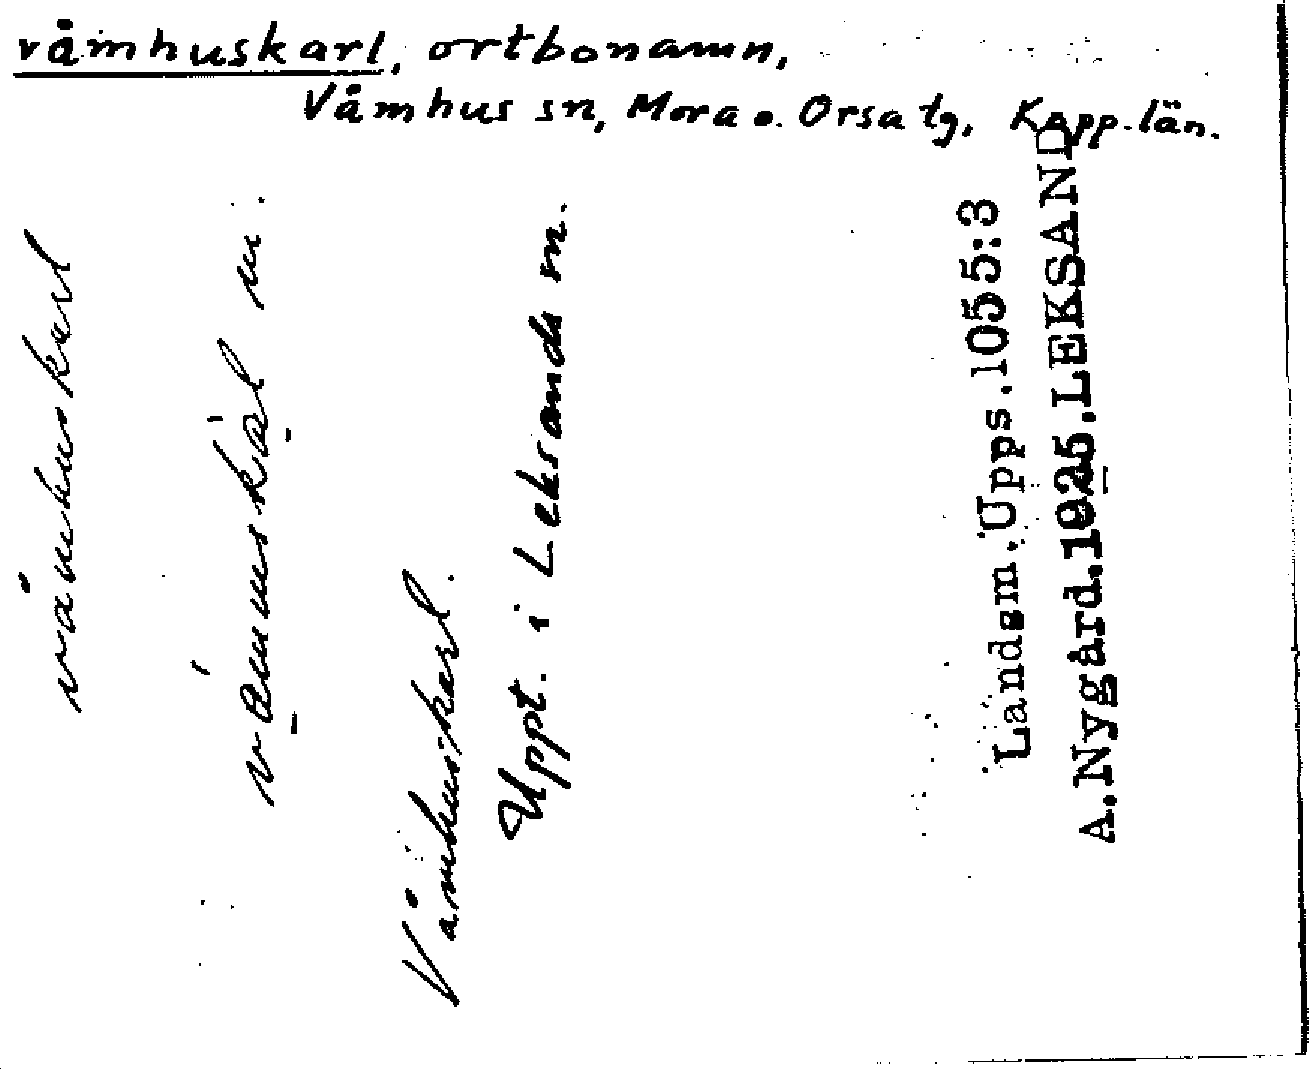 våmhuskarl, ortbonamn,
Våmhus sn, Mora o. Orsa tg, Kopp. län.
våmhuskarl
m.
Våmhuskarl.
Uppt. i Leksands sn.
Landsm. Upps. 1055:3
A. Nygård. 1925. LEKSAND